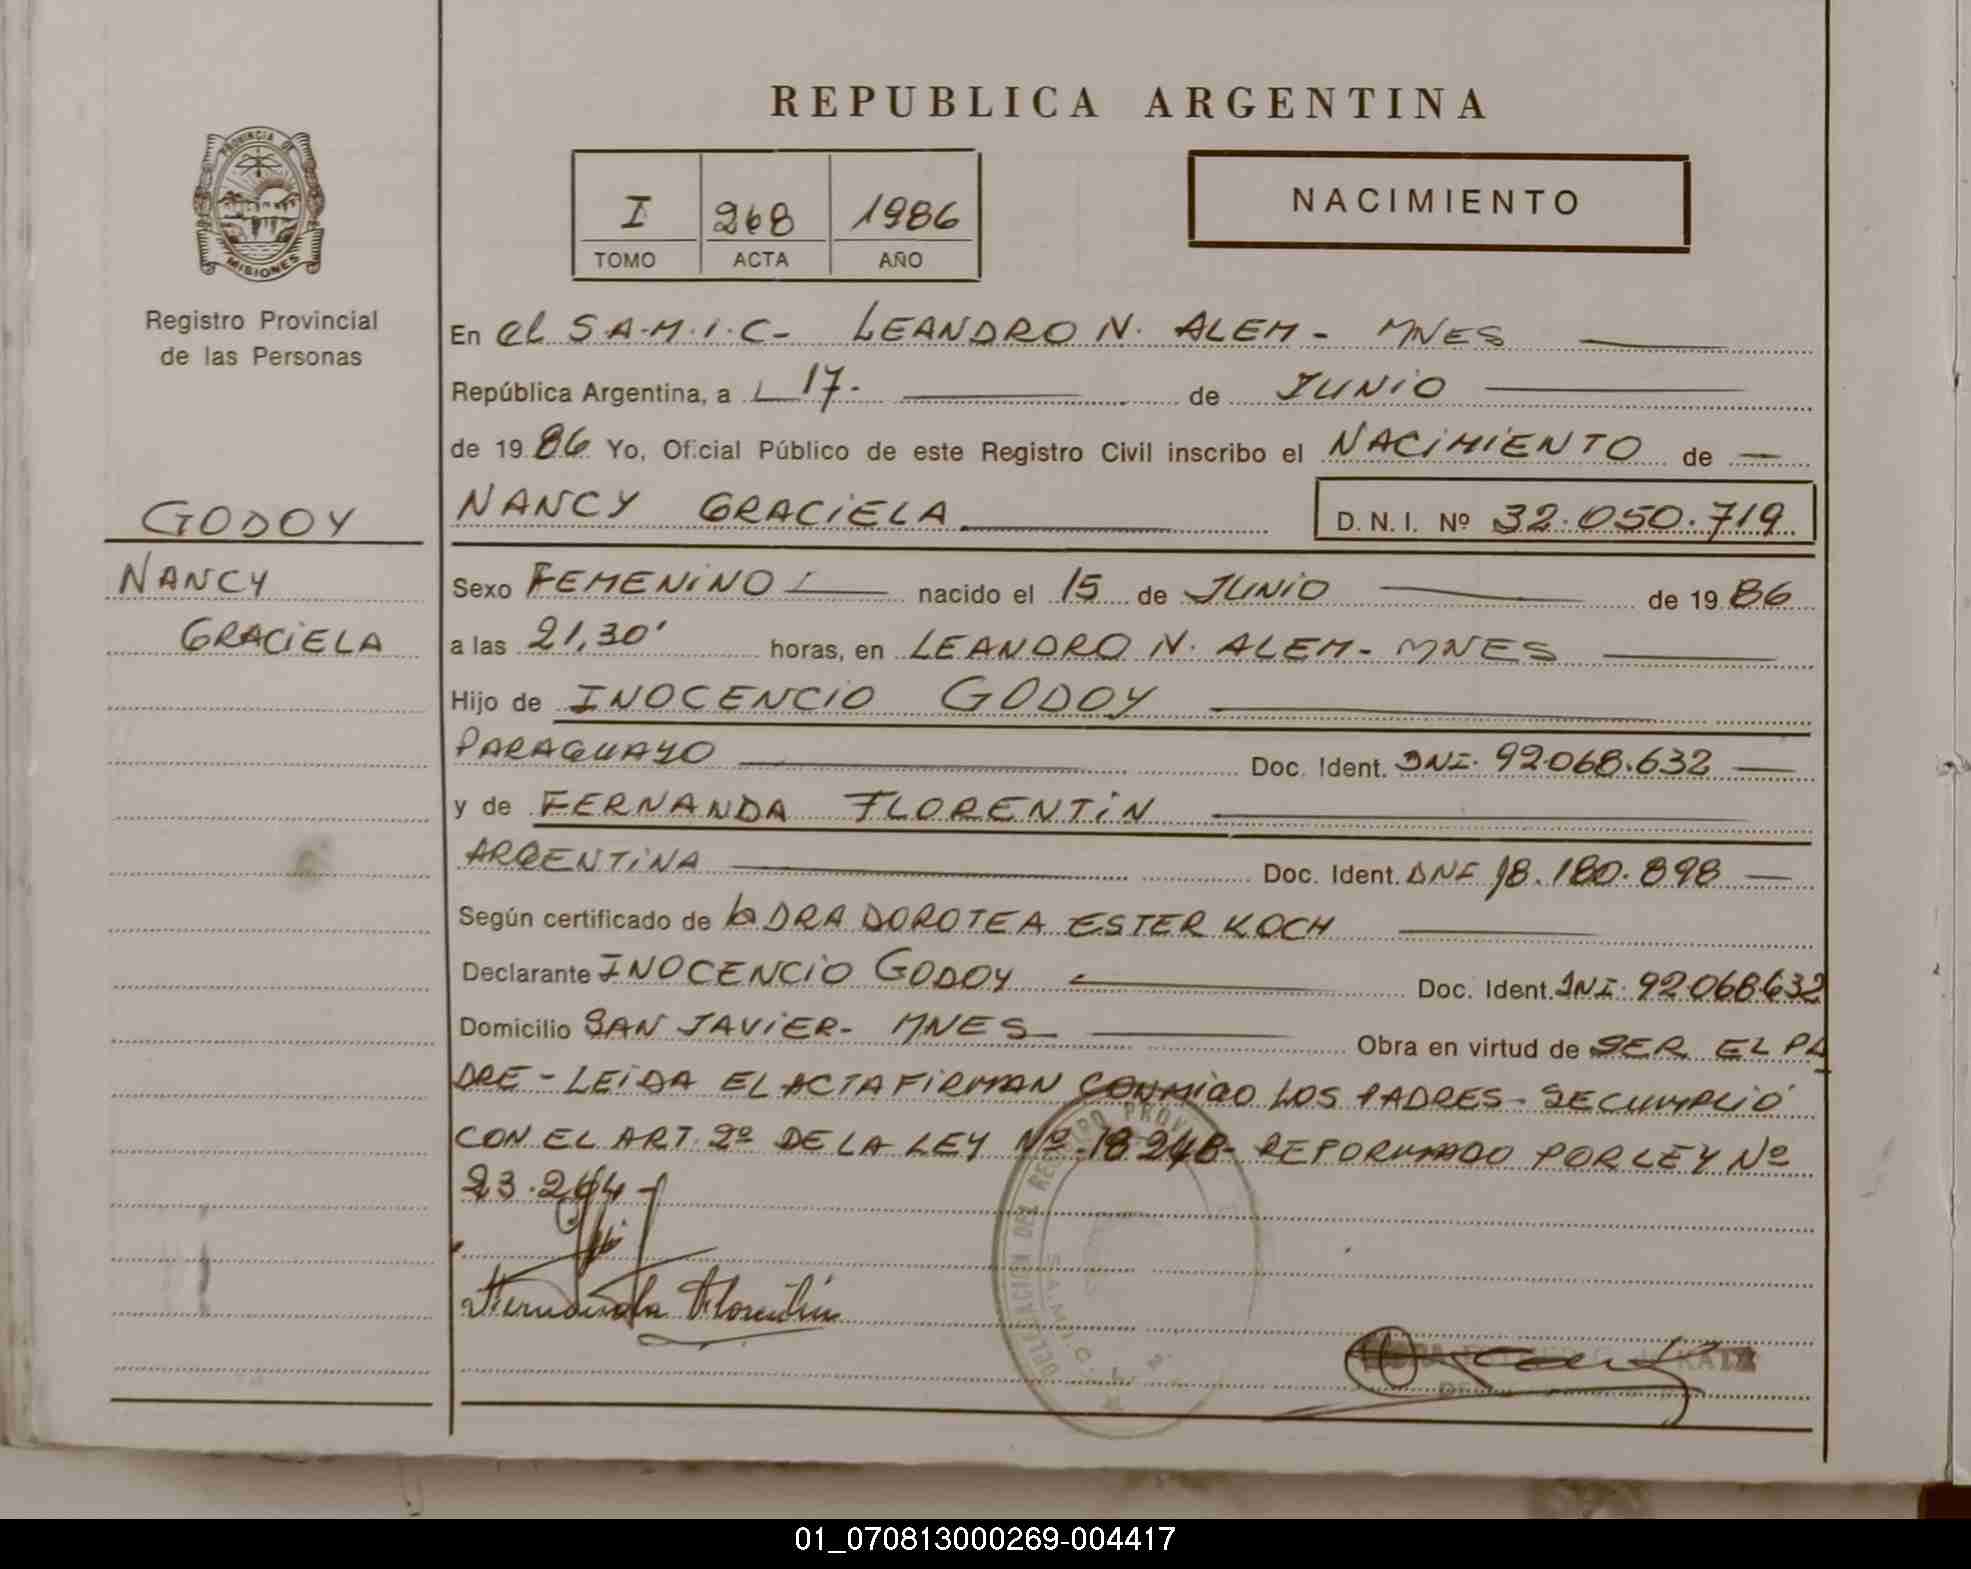 REPUBLICA ARGENTINA
PROVINCIA DE
MISIONES
Registro Provincial
de las Personas
I 268 1986
TOMO ACTA AÑO
NACIMIENTO
En el S.A.M.I.C- LEANDRO N. ALEM- MNES
República Argentina, a 17. de JUNIO
de 1986 Yo, Oficial Público de este Registro Civil inscribo el NACIMIENTO de
GODOY
NANCY
GRACIELA
NANCY GRACIELA D.N.I. Nº 32.050.719
Sexo FEMENINO nacido el 15 de JUNIO de 1986
a las 21,30' horas, en LEANDRO N. ALEM- MNES
Hijo de INOCENCIO GODOY
PARAGUAYO Doc. Ident. DNI. 92068.632
y de FERNANDA FLORENTIN
ARGENTINA Doc. Ident. DNI 18.180.898
Según certificado de la DRA DOROTEA ESTER KOCH
Declarante INOCENCIO GODOY Doc. Ident. DNI. 92068632
Domicilio SAN JAVIER- MNES Obra en virtud de SER EL PA
DRE - LEIDA EL ACTA FIRMAN CONMIGO LOS PADRES- SE CUMPLIO
CON EL ART. 2º DE LA LEY Nº 18248- REFORMADO POR LEY Nº
23.264-
Fernanda Florentin
DELEGACION DEL REGISTRO PROVI
S.A.M.I.C.
01_070813000269-004417